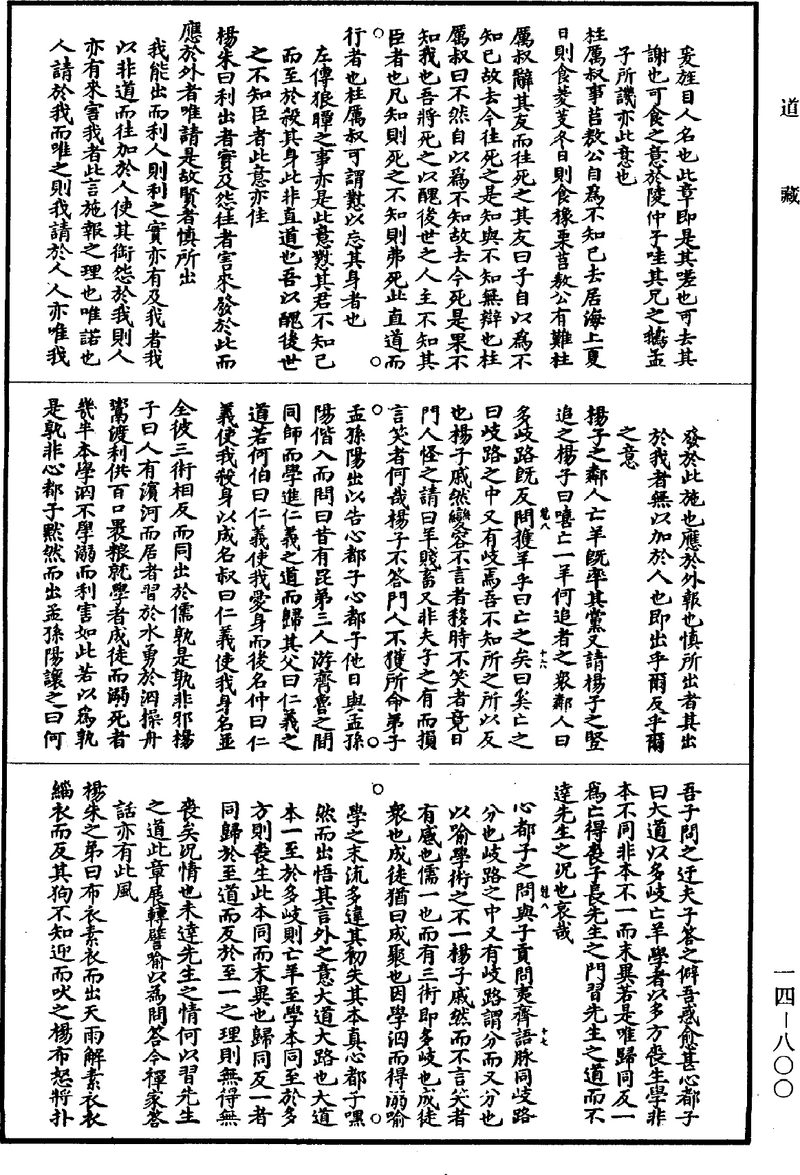 道藏
爰旌目人名也此章即是其嗟也可去其
謝也可食之意於陵仲子哇其兄之鵝孟
子所譏亦此意也
柱厲叔事莒敖公自為不知己去居海上夏
日則食菱芰冬日則食橡栗莒敖公有難柱
厲叔辭其友而往死之其友曰子自以為不
知己故去今往死之是知與不知無辯也柱
厲叔曰不然自以為不知故去今死是果不
知我也吾將死之以醜後世之人主不知其
臣者也凡知則死之不知則弗死此直道而
行者也柱厲叔可謂懟以忘其身者也
左傳狼瞫之事亦是此意懟其君不知己
而至於殺其身此非直道也吾以醜後世
之不知臣者此意亦佳
楊朱曰利出者實及怨往者害來發於此而
應於外者唯請是故賢者慎所出
我能出而利人則利之實亦有及我者我
以非道而往加於人使其銜怨於我則人
亦有來害我者此言施報之理也唯諾也
人請於我而唯之則我請於人人亦唯我
發於此施也應於外報也慎所出者其出
於我者無以加於人也即出乎爾反乎爾
之意
楊子之鄰人亡羊既率其黨又請楊子之豎
追之楊子曰嘻亡一羊何追者之衆鄰人曰
多歧路既反問獲羊乎曰亡之矣曰奚亡之
曰歧路之中又有歧焉吾不知所之所以反
也楊子戚然變容不言者移時不笑者竟日
門人怪之請曰羊賤畜又非夫子之有而損
言笑者何哉楊子不答門人不獲所命弟子
孟孫陽出以告心都子心都子他日與孟孫
陽偕入而問曰昔有昆弟三人游齊魯之間
同師而學進仁義之道而歸其父曰仁義之
道若何伯曰仁義使我愛身而後名仲曰仁
義使我殺身以成名叔曰仁義使我身名並
全彼三術相反而同出於儒孰是孰非邪楊
子曰人有濱河而居者習於水勇於泅操舟
鬻渡利供百口褁粮就學者成徒而溺死者
幾半本學泅不學溺而利害如此若以為孰
是孰非心都子黙然而出孟孫陽讓之曰何
吾子問之迂夫子答之僻吾惑愈甚心都子
曰大道以多歧亡羊學者以多方喪生學非
本不同非本不一而末異若是唯歸同反一
為亡得喪子長先生之門習先生之道而不
逹先生之況也哀哉
心都子之問與子貢問夷齊語脉同歧路
分也歧路之中又有歧路謂分而又分也
以喻學術之不一楊子戚然而不言笑者
有感也儒一也而有三術即多歧也成徒
衆也成徒猶曰成聚也因學泅而得溺喻
學之末流多違其初失其本真心都子嘿
然而出悟其言外之意大道大路也大道
本一至於多歧則亡羊至學本同至於多
方則喪生此本同而末異也歸同反一者
同歸於至道而反於至一之理則無得無
喪矣況情也未逹先生之情何以習先生
之道此章展轉譬喻以為問答今禪家答
話亦有此風
楊朱之弟曰布衣素衣而出天雨解素衣衣
緇衣而反其狗不知迎而吠之楊布怒將扑
一四—八〇〇